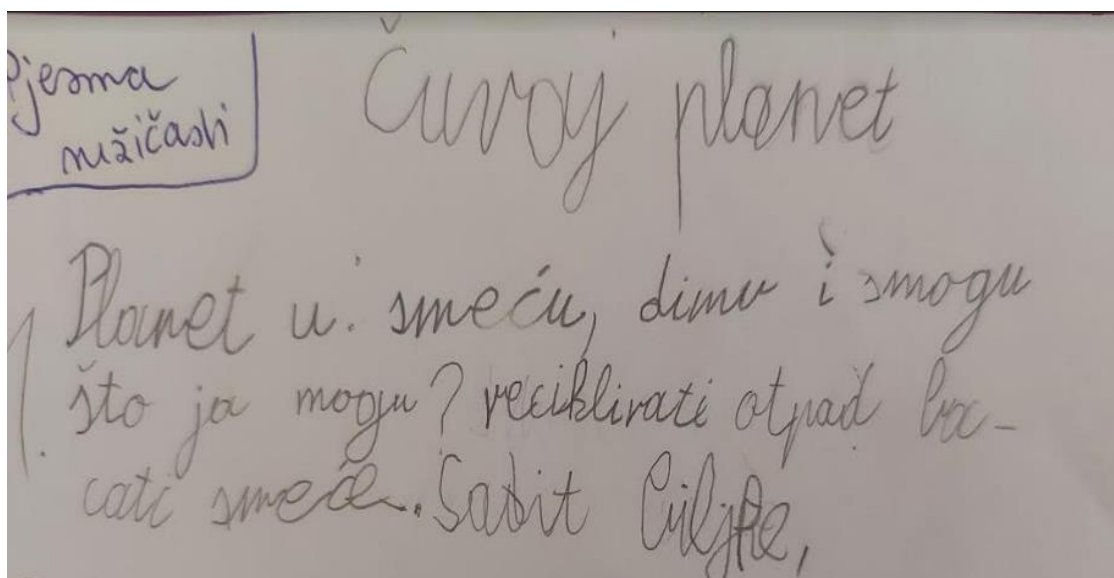 Pjesma
nižičasti
Čuvaj planet
Planet u. smeću, dimu i smogu
što ja mogu? reciklirati otpad ba-
cati smeće. Sadit biljke,